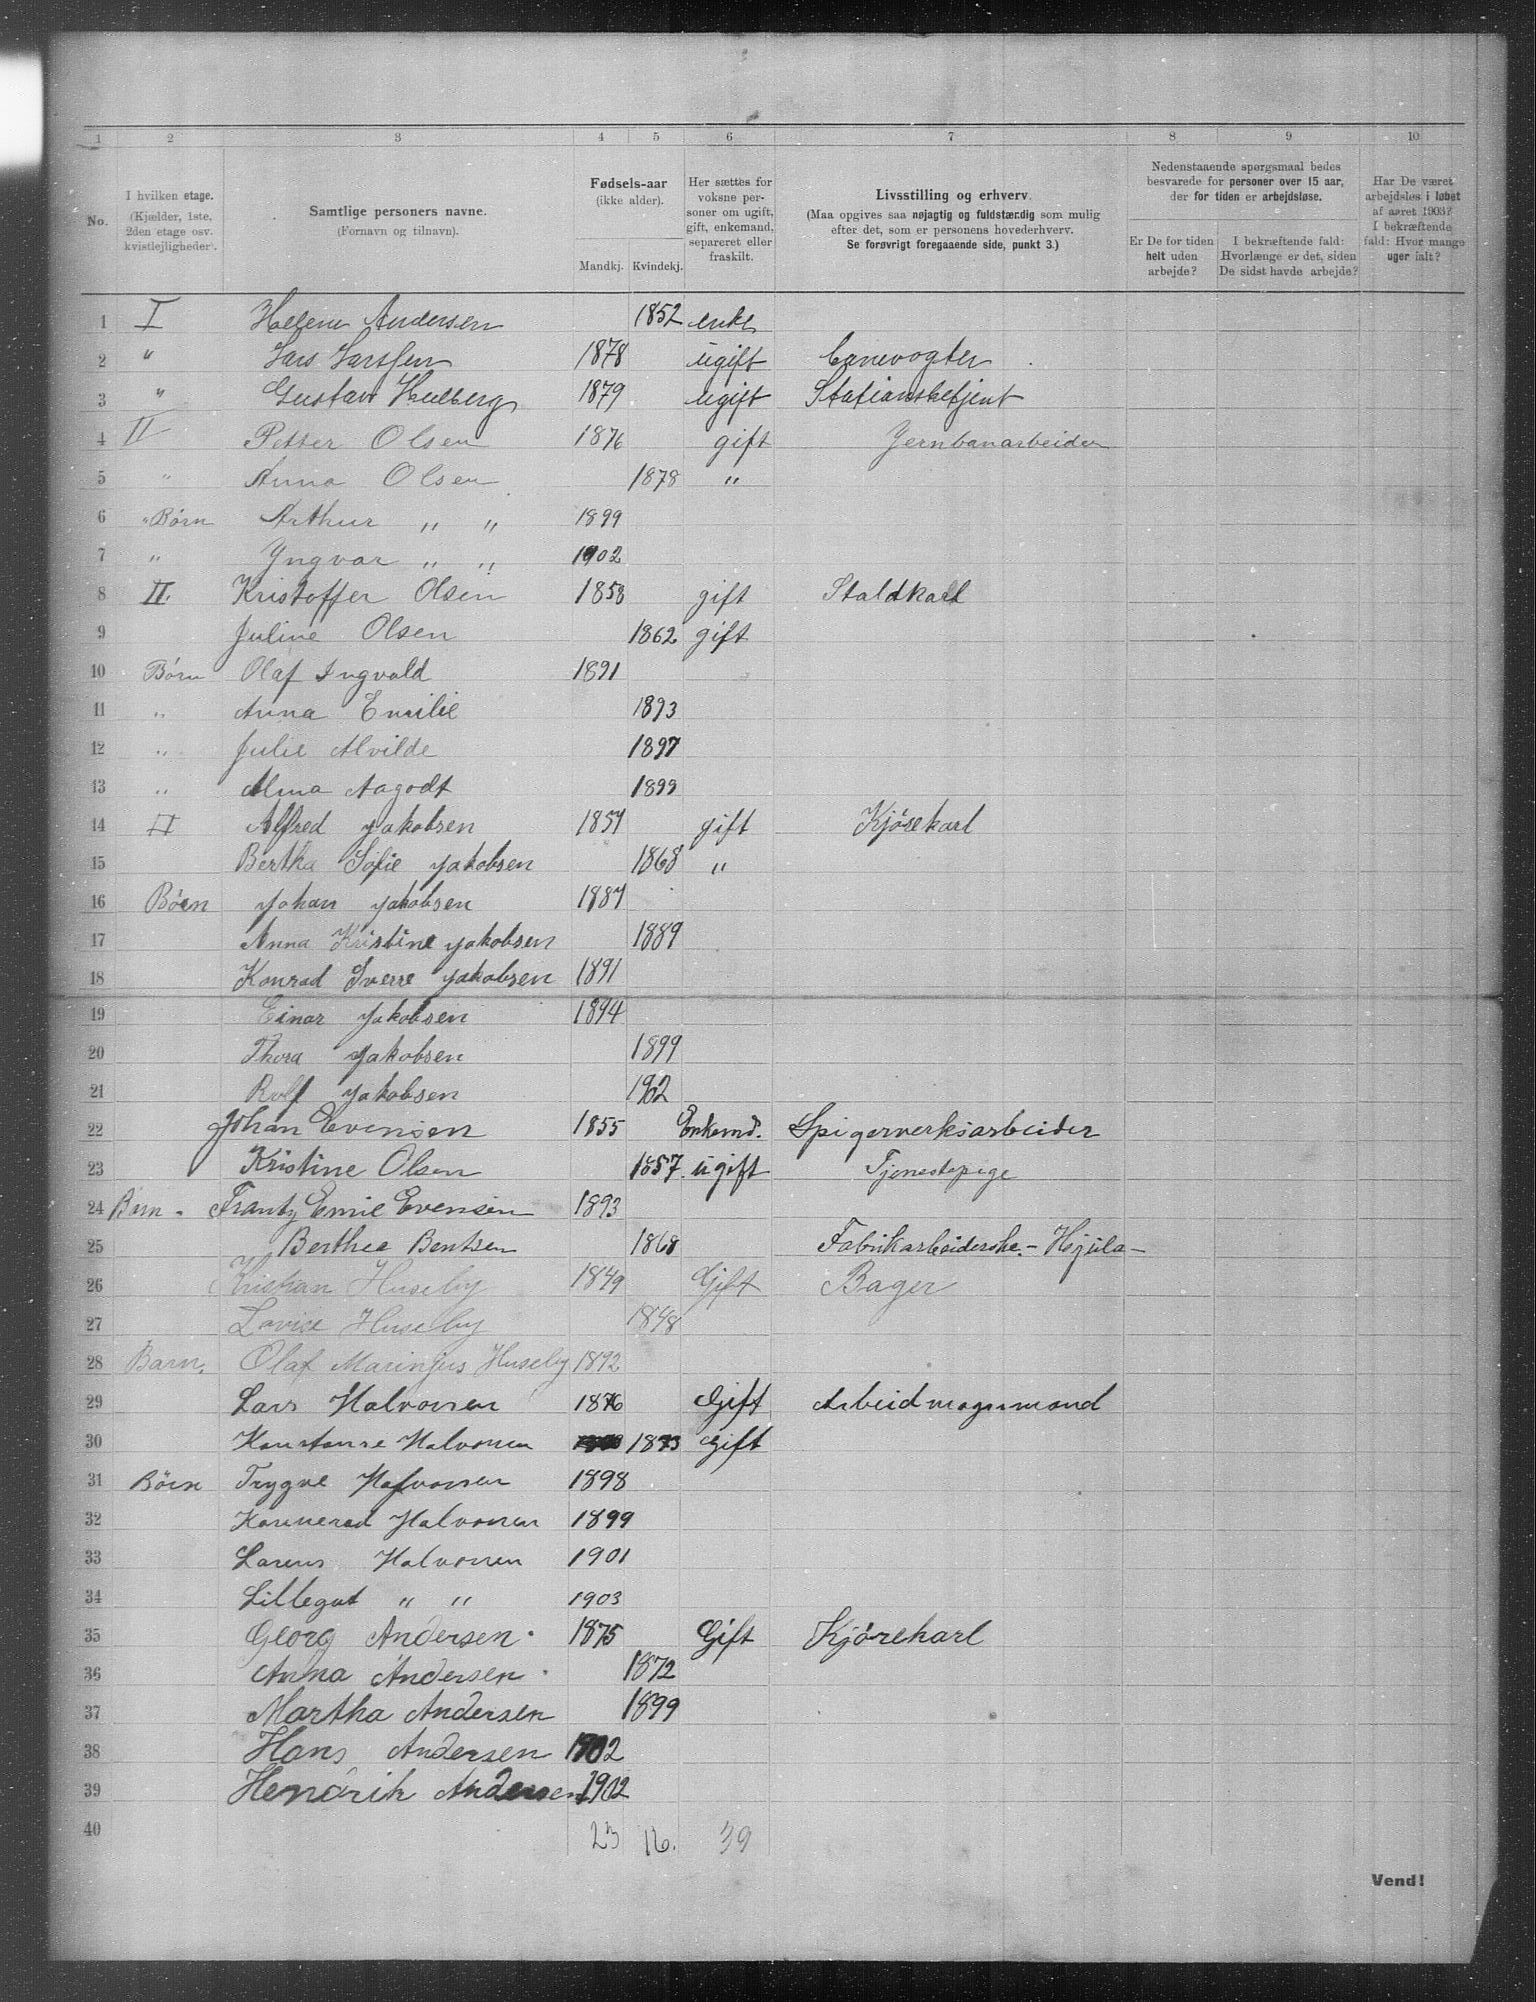 1 2 3 4 5 6 7 8 9 10
No.
I hvilken etage. (Kjælder, 1ste, 2den etage osv. kvistleiligheder).
Samtlige personers navne. (Fornavn og tilnavn).
Fødsels-aar (ikke alder).
Mandkj. Kvindekj.
Her sættes for voksne personer om ugift, gift, enkemand, separeret eller fraskilt.
Livsstilling og erhverv. (Maa opgives saa nøjagtig og fuldstændig som mulig efter det, som er personens hovederhverv. Se forøvrigt foregaaende side, punkt 3.)
Nedenstaaende spørgsmaal bedes besvarede for personer over 15 aar, der for tiden er arbejdsløse.
Er De for tiden helt uden arbejde?
I bekræftende fald: Hvorlænge er det, siden De sidst havde arbejde?
Har De været arbejdsløs i løbet af aaret 1903? I bekræftende fald: Hvor mange uger ialt?
1 I Helene Andersen 1852 enke
2 " Lars Larssen 1878 ugift Banevogter
3 " Gustav Hulberg 1879 ugift Stationsbetjent
4 II Petter Olsen 1876 gift Jernbanarbeider
5 " Anna Olsen 1878 "
6 " Børn Arthur " " 1899
7 " Yngvar " " 1902
8 II. Kristoffer Olsen 1858 gift Staldkarl
9 Juline Olsen 1862 gift
10 Børn Olaf Ingvald 1891
11 " Anna Emilie 1893
12 " Julie Alvilde 1897
13 " Alma Aagodt 1899
14 II Alfred Jakobsen 1857 gift Kjøsekarl
15 Bertha Sofie Jakobsen 1868 "
16 Børn Johan Jakobsen 1887
17 Anna Kristine Jakobsen 1889
18 Konrad Sverre Jakobsen 1891
19 Einar Jakobsen 1894
20 Thora Jakobsen 1899
21 Rolf Jakobsen 1902
22 Johan Evensen 1855 Enkemd. Spigerverksarbeider
23 Kristine Olsen 1857. ugift Tjenestepige
24 Barn - Frantz Emil Evensen 1893
25 Berthea Bentsen 1868 Fabrikarbeiderske. - Hjula -
26 Kristian Huseby 1849 Gift Bager
27 Lovise Huseby 1848
28 Barn. Olaf Marinius Huseby 1892
29 Lars Halvorsen 1876 Gift Arbeidmogsmand
30 Konstanse Halvorsen 1873 Gift
31 Børn Trygve Halvorsen 1898
32 Konnerad Halvorsen 1899
33 Larens Halvorsen 1901
34 Lillegut " " 1903
35 Georg Andersen 1875 Gift Kjörekarl
36 Anna Andersen 1872
37 Martha Andersen 1899
38 Hans Andersen 1902
39 Hendrik Andersen 1902
40 23 16. 39
Vend!